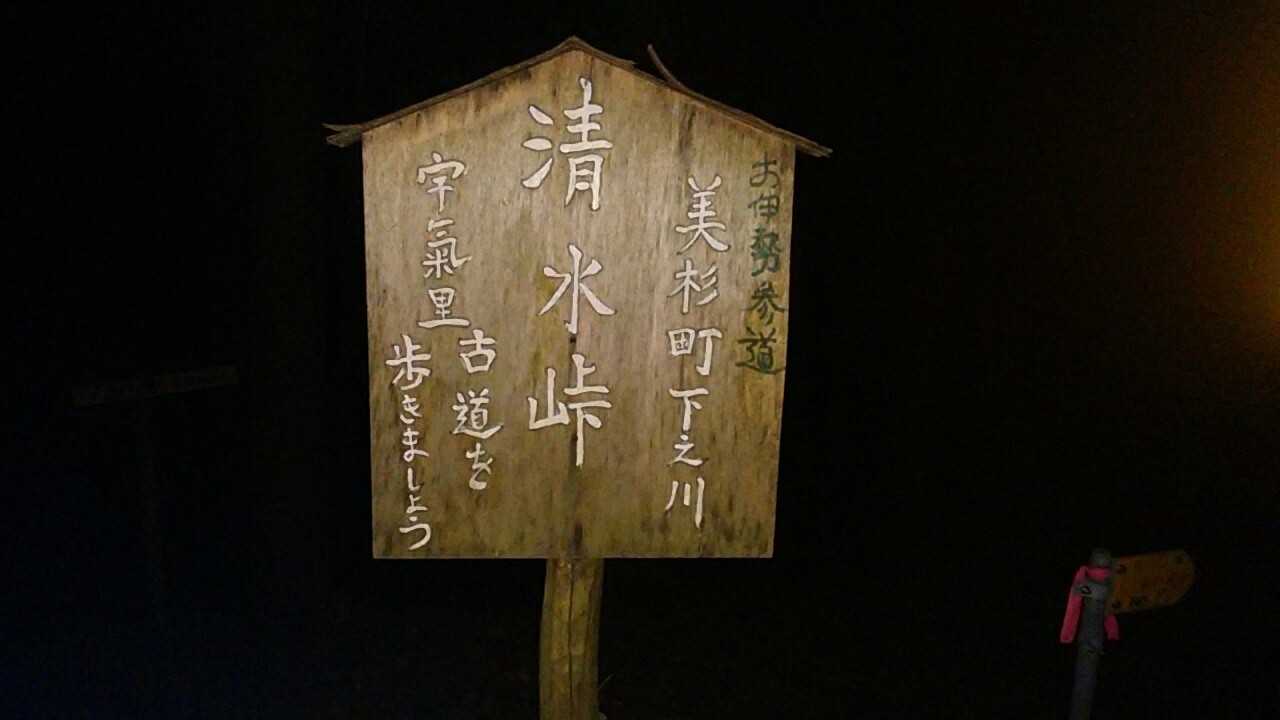 お伊勢参道
美杉町下之川
清水峠
宇氣里
古道を
歩きましょう